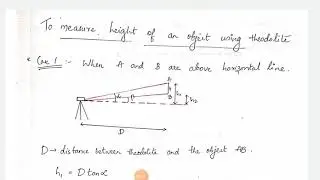 To measure height of an object using theodolite
* Case 1 :- When A and B are above horizontal line.
A
B
α
β
h₁
h₂
D
D → distance between theodolite and the object AB.
h₁ = D tan α